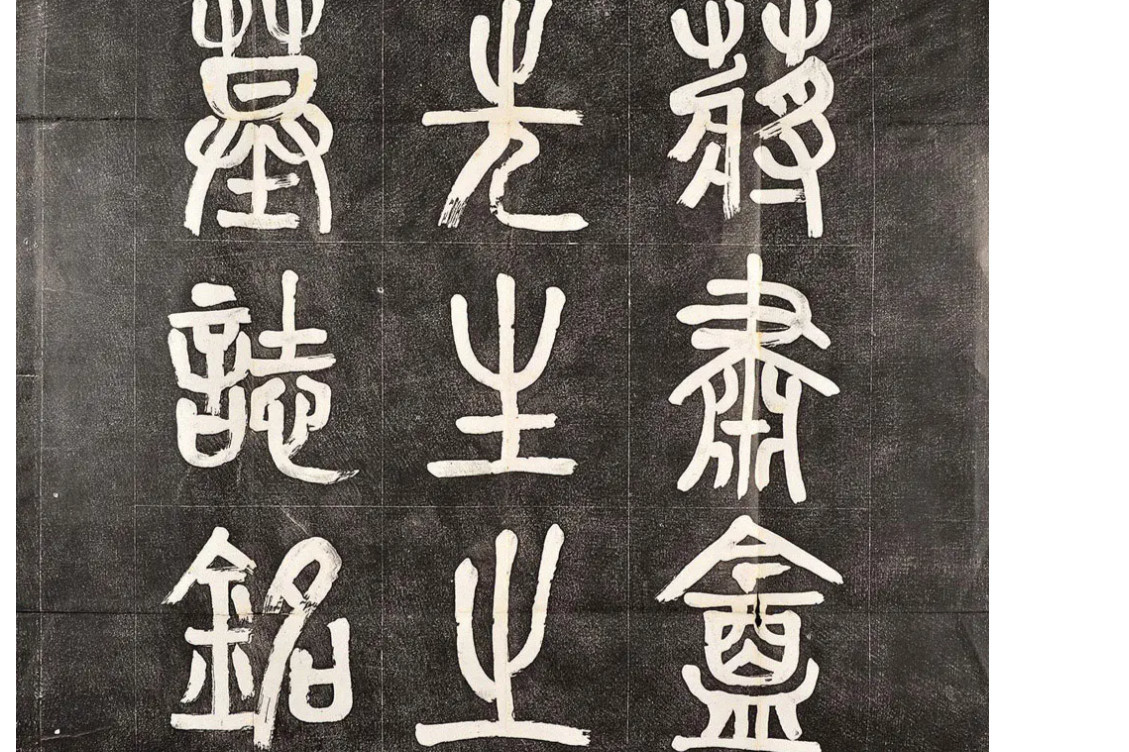 蔣肅盦
先生之
墓誌銘